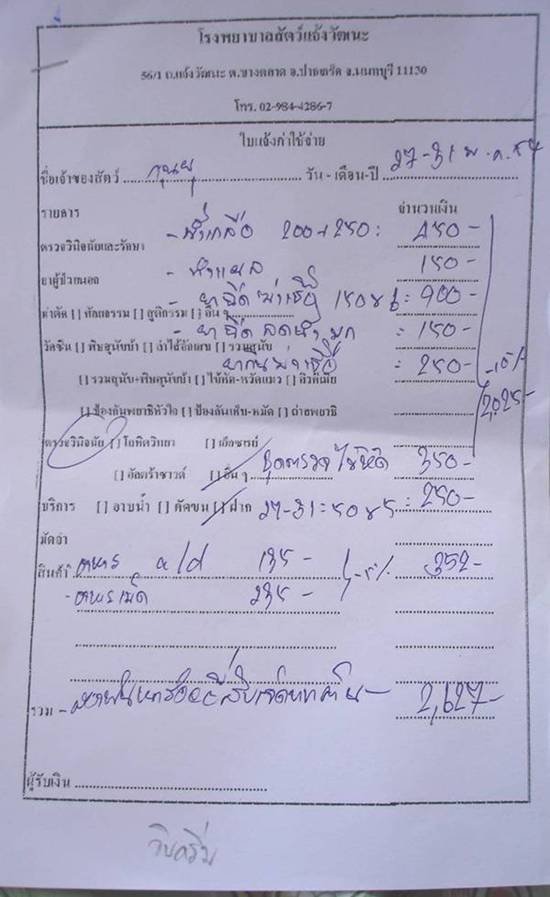 โรงพยาบาลสัตว์แจ้งวัฒนะ
56/1 ถ.แจ้งวัฒนะ ต.บางตลาด อ.ปากเกร็ด จ.นนทบุรี 11120
โทร. 02-984-4286-7
ใบแจ้งค่าใช้จ่าย
ชื่อเจ้าของสัตว์ วัน - เดือน-ปี 27-31 พ.ค. 54
รายการ จำนวนเงิน
ตรวจวินิจฉัยและรักษา - น้ำเกลือ 200+250 : 450-
ยาผู้ป่วยนอก - ทำแผล 150-
- ยาฉีดฆ่าเชื้อ 150x6 : 900-
ผ่าตัด [ ] ศัลยกรรม [ ] สูติกรรม [ ] อื่น ๆ
- ยาฉีดลดน้ำมูก = 150-
วัคซีน [ ] พิษสุนัขบ้า [ ] ลำไส้อักเสบ [ ] รวมสุนัข
ยากินฆ่าเชื้อ = 250-
-10%
[ ] รวมสุนัข+พิษสุนัขบ้า [ ] ไข้หัด-หวัดแมว [ ] ลิวคีเมีย
2,025-
[ ] ป้องกันพยาธิหัวใจ [ ] ป้องกันเห็บ-หมัด [ ] ถ่ายพยาธิ
ตรวจวินิจฉัย [ ] โลหิตวิทยา [ ] เอ็กซเรย์
[ ] อัลตร้าซาวด์ [ ] อื่น ๆ ชุดตรวจไข้หัด 350-
บริการ [ ] อาบน้ำ [ ] ตัดขน [ ] ฝาก 27-31 = 50x5 = 250-
มัดจำ
สินค้า อาหาร a/d 135- -5% 352-
- อาหารเม็ด 235-
รวม - สองพันหกร้อยยี่สิบเจ็ดบาทถ้วน - 2,627-
ผู้รับเงิน